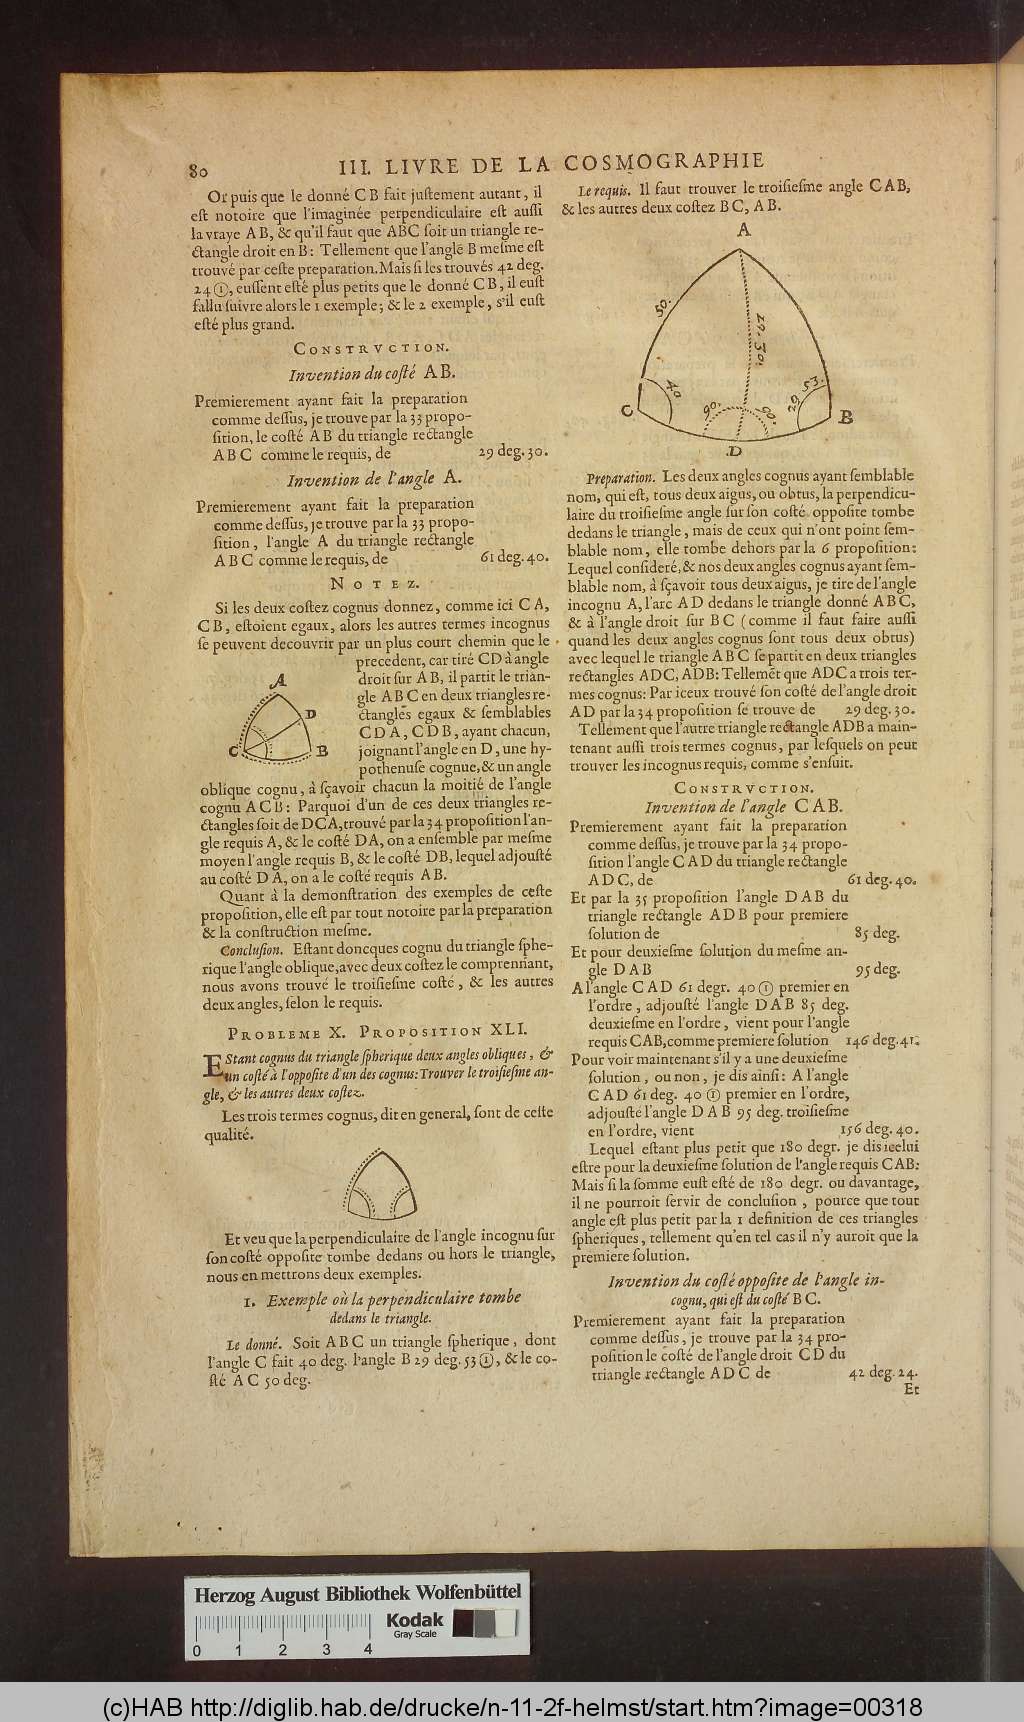 80
III. LIVRE DE LA COSMOGRAPHIE
Or puis que le donné C B fait juſtement autant, il
eſt notoire que l'imaginée perpendiculaire eſt auſſi
la vraye A B, & qu'il faut que ABC ſoit un triangle re-
ctangle droit en B: Tellement que l'angle B meſme eſt
trouvé par ceſte preparation. Mais ſi les trouvés 42 deg.
24 ①, euſſent eſté plus petits que le donné C B, il euſt
fallu ſuivre alors le 1 exemple; & le 2 exemple, s'il euſt
eſté plus grand.
CONSTRVCTION.
Invention du coſté A B.
Premierement ayant fait la preparation
comme deſſus, je trouve par la 33 propo-
ſition, le coſté A B du triangle rectangle
A B C comme le requis, de 29 deg. 30.
Invention de l'angle A.
Premierement ayant fait la preparation
comme deſſus, je trouve par la 33 propo-
ſition, l'angle A du triangle rectangle
A B C comme le requis, de 61 deg. 40.
NOTEZ.
Si les deux coſtez cognus donnez, comme ici C A,
C B, eſtoient egaux, alors les autres termes incognus
ſe peuvent decouvrir par un plus court chemin que le
precedent, car tiré CD à angle
droit ſur A B, il partit le trian-
gle A B C en deux triangles re-
ctangles egaux & ſemblables
C D A, C D B, ayant chacun,
joignant l'angle en D, une hy-
pothenuſe cognue, & un angle
A
D
C
B
oblique cognu, à ſçavoir chacun la moitié de l'angle
cognu A C B: Parquoi d'un de ces deux triangles re-
ctangles ſoit de DCA, trouvé par la 34 propoſition l'an-
gle requis A, & le coſté DA, on a enſemble par meſme
moyen l'angle requis B, & le coſté DB, lequel adjouſté
au coſté D A, on a le coſté requis A B.
Quant à la demonſtration des exemples de ceſte
propoſition, elle eſt par tout notoire par la preparation
& la conſtruction meſme.
Concluſion. Eſtant doncques cognu du triangle ſphe-
rique l'angle oblique, avec deux coſtez le comprennant,
nous avons trouvé le troiſieſme coſté, & les autres
deux angles, ſelon le requis.
PROBLEME X. PROPOSITION XLI.
EStant cognus du triangle ſpherique deux angles obliques, &
un coſté à l'oppoſite d'un des cognus: Trouver le troiſieſme an-
gle, & les autres deux coſtez.
Les trois termes cognus, dit en general, ſont de ceſte
qualité.
Et veu que la perpendiculaire de l'angle incognu ſur
ſon coſté oppoſite tombe dedans ou hors le triangle,
nous en mettrons deux exemples.
1. Exemple où la perpendiculaire tombe
dedans le triangle.
Le donné. Soit A B C un triangle ſpherique, dont
l'angle C fait 40 deg. l'angle B 29 deg. 53 ①, & le co-
ſté A C 50 deg.
Le requis. Il faut trouver le troiſieſme angle C A B,
& les autres deux coſtez B C, A B.
A
50.
29. 30.
40
90.
90.
29. 53.
C
B
D
Preparation. Les deux angles cognus ayant ſemblable
nom, qui eſt, tous deux aigus, ou obtus, la perpendicu-
laire du troiſieſme angle ſur ſon coſté oppoſite tombe
dedans le triangle, mais de ceux qui n'ont point ſem-
blable nom, elle tombe dehors par la 6 propoſition:
Lequel conſideré, & nos deux angles cognus ayant ſem-
blable nom, à ſçavoir tous deux aigus, je tire de l'angle
incognu A, l'arc A D dedans le triangle donné A B C,
& à l'angle droit ſur B C (comme il faut faire auſſi
quand les deux angles cognus ſont tous deux obtus)
avec lequel le triangle A B C ſe partit en deux triangles
rectangles ADC, ADB: Tellemēt que ADC a trois ter-
mes cognus: Par iceux trouvé ſon coſté de l'angle droit
A D par la 34 propoſition ſe trouve de 29 deg. 30.
Tellement que l'autre triangle rectangle ADB a main-
tenant auſſi trois termes cognus, par leſquels on peut
trouver les incognus requis, comme s'enſuit.
CONSTRVCTION.
Invention de l'angle C A B.
Premierement ayant fait la preparation
comme deſſus, je trouve par la 34 propo-
ſition l'angle C A D du triangle rectangle
A D C, de 61 deg. 40.
Et par la 35 propoſition l'angle D A B du
triangle rectangle A D B pour premiere
ſolution de 85 deg.
Et pour deuxieſme ſolution du meſme an-
gle D A B 95 deg.
A l'angle C A D 61 degr. 40 ① premier en
l'ordre, adjouſté l'angle D A B 85 deg.
deuxieſme en l'ordre, vient pour l'angle
requis CAB, comme premiere ſolution 146 deg. 41.
Pour voir maintenant s'il y a une deuxieſme
ſolution, ou non, je dis ainſi: A l'angle
C A D 61 deg. 40 ① premier en l'ordre,
adjouſté l'angle D A B 95 deg. troiſieſme
en l'ordre, vient 156 deg. 40.
Lequel eſtant plus petit que 180 degr. je dis icelui
eſtre pour la deuxieſme ſolution de l'angle requis CAB:
Mais ſi la ſomme euſt eſté de 180 degr. ou davantage,
il ne pourroit ſervir de concluſion, pource que tout
angle eſt plus petit par la 1 definition de ces triangles
ſpheriques, tellement qu'en tel cas il n'y auroit que la
premiere ſolution.
Invention du coſté oppoſite de l'angle in-
cognu, qui eſt du coſté B C.
Premierement ayant fait la preparation
comme deſſus, je trouve par la 34 pro-
poſition le coſté de l'angle droit C D du
triangle rectangle A D C de 42 deg. 24.
Et
Herzog August Bibliothek Wolfenbüttel
0 1 2 3 4
Kodak
Gray Scale
(c)HAB http://diglib.hab.de/drucke/n-11-2f-helmst/start.htm?image=00318